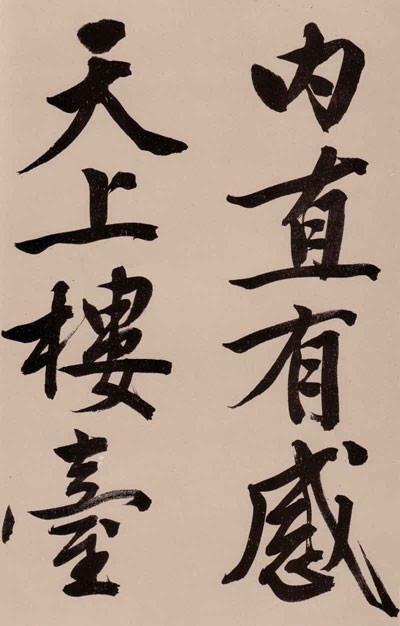 内直有感
天上樓臺